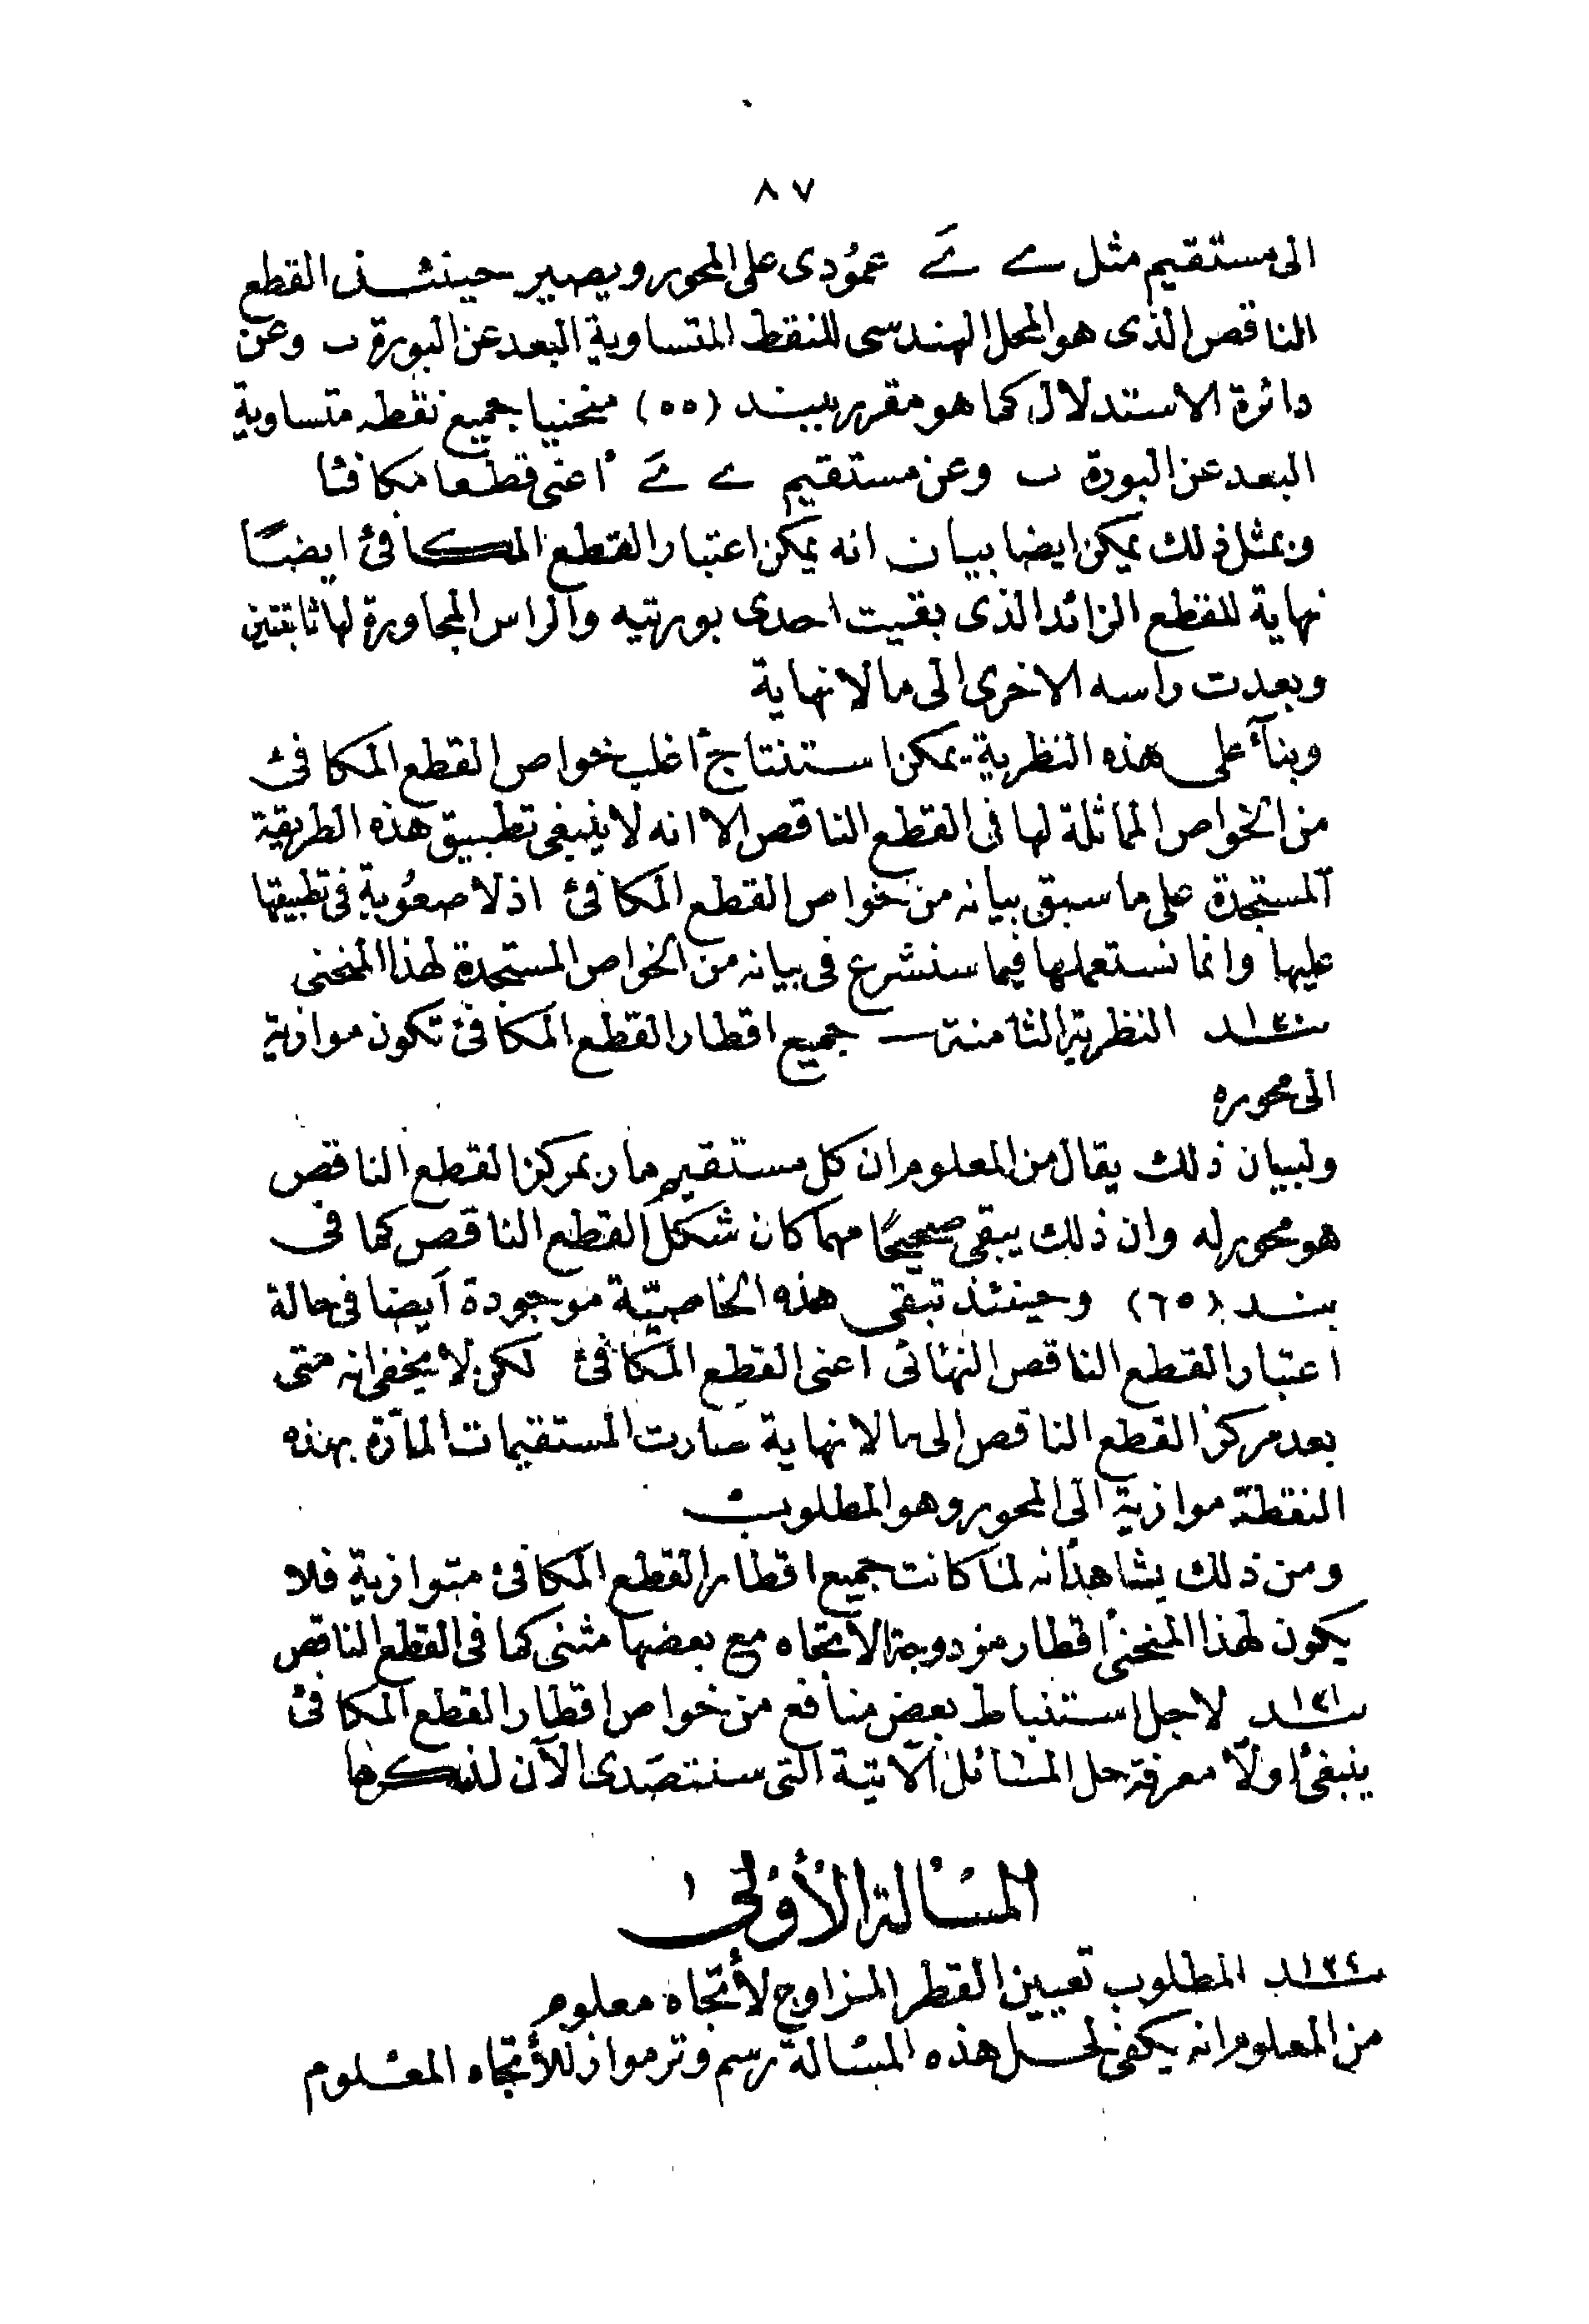 ٨٧
الى مستقيم مثل ے ےَ عمُودى على المحور ويصير حينئذ القطع
الناقص الذى هو المحل الهندسى للنقط المتساوية البعد عن البورة ب وعن
دائرة الاستدلال كما هو مقرر ببند (٥٥) منحنيا جميع نقطه متساوية
البعد عن البورة ب وعن مستقيم ے ےَ أعنى قطعا مكافئا
وبمثل ذلك يمكن ايضا بيان انه يمكن اعتبار القطع المكافئ ايضًا
نهاية للقطع الزائد الذى بقيت احدى بورتيه والراس المجاورة لها ثابتتين
وبعدت راسه الاخرى الى ما لا نهاية
وبنآء على هذه النظرية يمكن استنتاج أغلب خواص القطع المكافئ
من الخواص المماثلة لها فى القطع الناقص الا انه لا ينبغى تطبيق هذه الطريقة
المستجدة على ما سبق بيانه من خواص القطع المكافئ اذ لا صعُوبة فى تطبيقها
عليها وانما نستعملها فيما سنشرع فى بيانه من الخواص المستجدة لهذا المنحنى
بند النظرية الثامنة ـ جميع اقطار القطع المكافئ تكون موازية
الى محوره
ولبيان ذلك يقال من المعلوم ان كل مستقيم مار بمركز القطع الناقص
هو محور له وان ذلك يبقى صحيحًا مهما كان شكل القطع الناقص كما فى
بند (٦٥) وحينئذ تبقى هذه الخاصيّة موجودة أيضا فى حالة
اعتبار القطع الناقص النهائى اعنى القطع المكافئ لكن لا يخفى انه متى
بعد مركز القطع الناقص الى ما لا نهاية صارت المستقيمات المارّة بهذه
النقطة موازية الى المحور وهو المطلوب
ومن ذلك يشاهد انه لما كانت جميع اقطار القطع المكافئ متوازية فلا
يكون لهذا المنحنى أقطار مزدوجة الاتجاه مع بعضها مثنى كما فى القطع الناقص
١٢١ بند لاجل استنباط بعض منافع من خواص اقطار القطع المكافئ
ينبغى أولاً معرفة حل المسائل الآتية التى سنتصَدى الآن لذكرها
المسَألة الأولى
بند المطلوب تعيين القطر المزاوج لأتجاه معلوم
من المعلوم انه يكفى لحل هذه المسَألة رسم وتر مواز للأتجاه المعْلوم